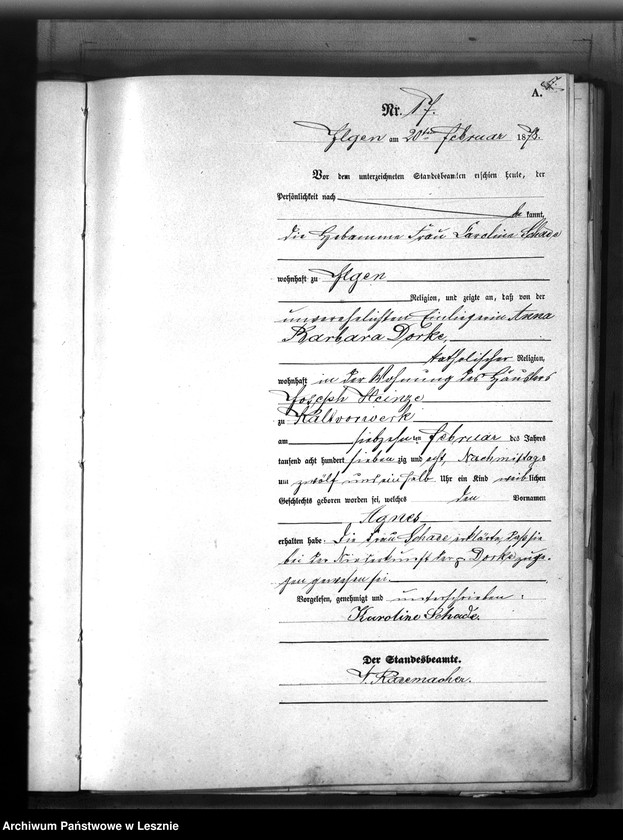 A.
Nr. 17.
Ilgen am 20ten Februar 1878.
Vor dem unterzeichneten Standesbeamten erschien heute, der
Persönlichkeit nach
be kannt,
die Hebamme Frau Karoline Schade
wohnhaft zu Ilgen
Religion, und zeigte an, daß von der
unverehelichten Einliegerin Anna
Barbara Dorke,
katholischer Religion,
wohnhaft in der Wohnung des Häuslers
Joseph Heinze
zu Kaltvorwerk
am siebzehnten Februar des Jahres
tausend acht hundert sieben zig und acht, Nachmittags
um zwölf und einhalb Uhr ein Kind weiblichen
Geschlechts geboren worden sei, welches den Vornamen
Agnes
erhalten habe. Die Frau Schade erklärte, daß sie
bei der Niederkunft der Dorke zuge-
gen gewesen sei.
Vorgelesen, genehmigt und unterschrieben:
Karoline Schade.
Der Standesbeamte.
Rademacher.
Archiwum Państwowe w Lesznie